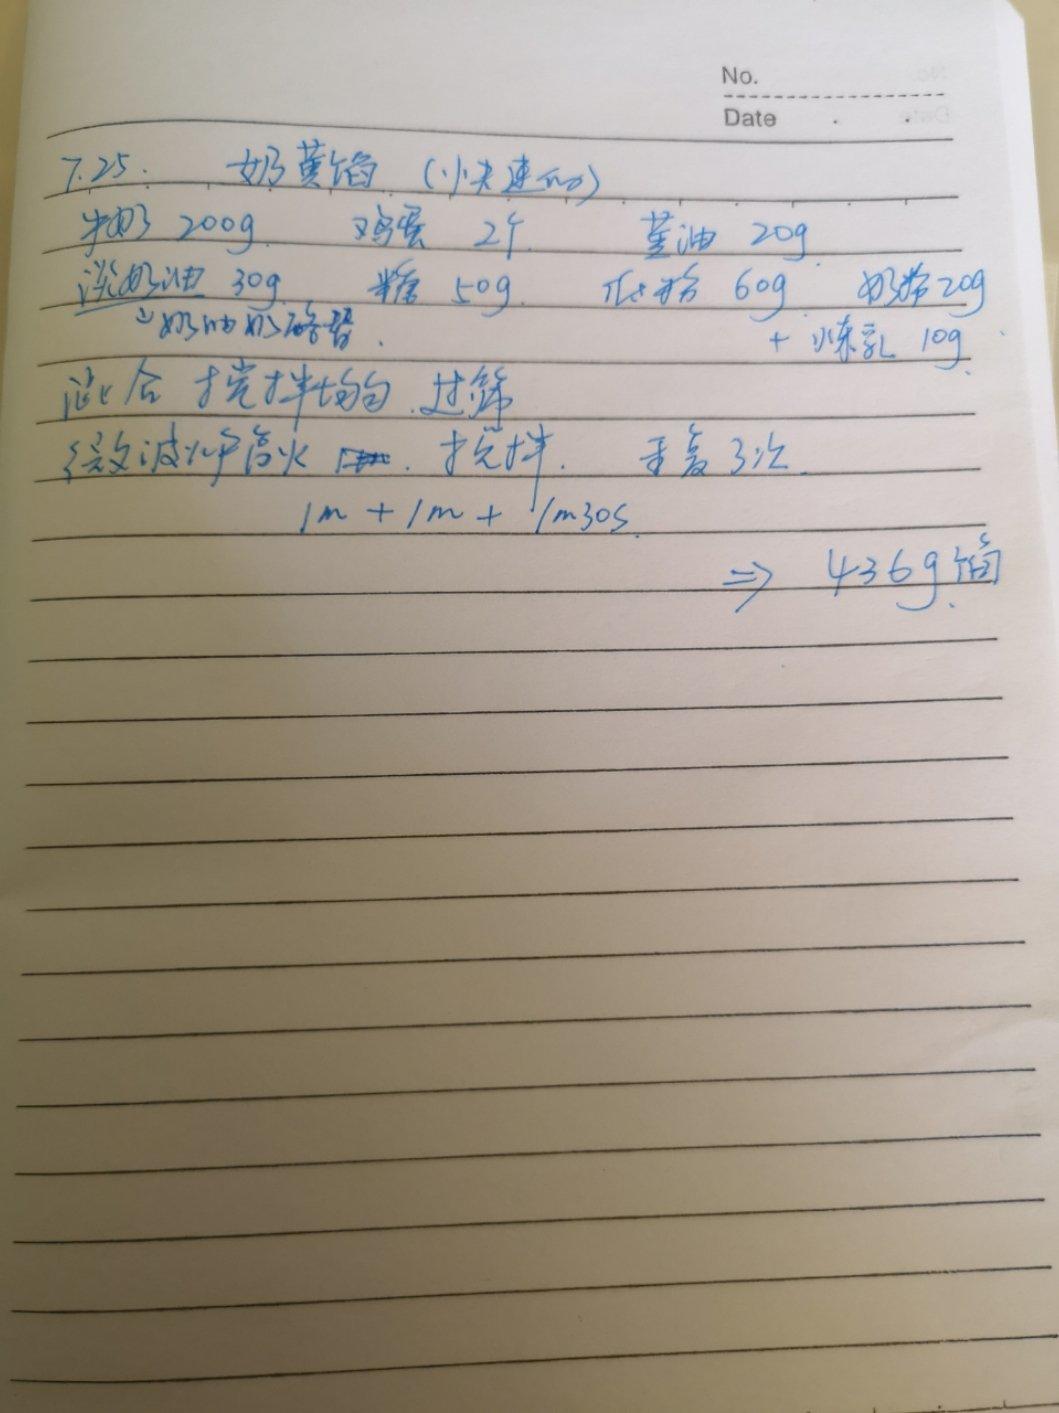 No.
Date
7.25. 奶黄馅
牛奶 200g 鸡蛋 2个 黄油 20g
淡奶油 30g 糖 50g 低粉 60g 奶粉 20g
奶油奶酪替. + 炼乳 10g
混合 搅拌均匀 过筛
微波炉高火 . 搅拌. 重复3次
1m + 1m + 1m30s
⇒ 436g馅.